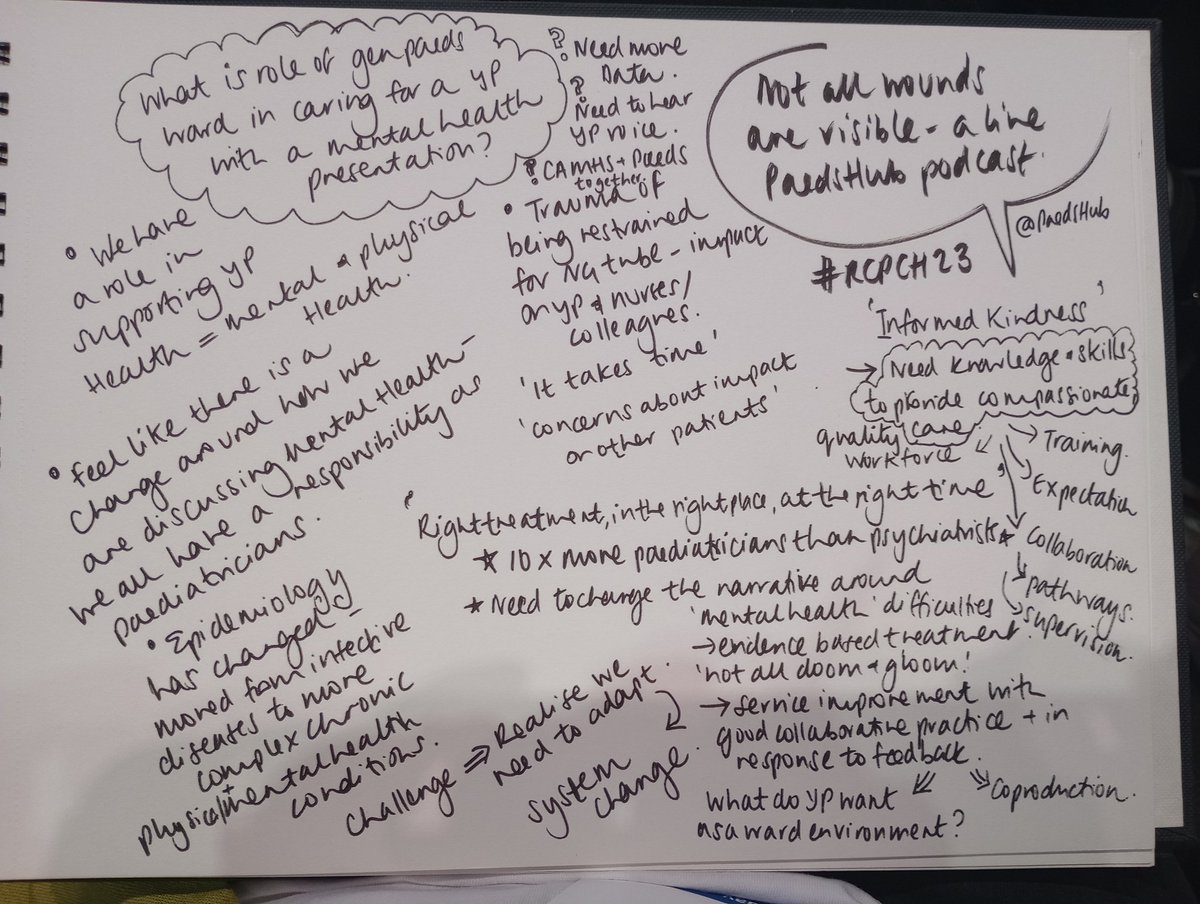 What is role of gen paeds
ward in caring for a YP
with a mental health
presentation?
? Need more
Data.
? Need to hear
YP voice.
? CAMHS + Paeds
together
Not all wounds
are visible - a live
PaedsHub podcast.
@PaedsHub
#RCPCH23
• We have
a role in
supporting YP
Health = mental & physical
Health.
• Feel like there is a
change around how we
are discussing mental Health -
we all have a responsibility as
paediatricians.
• Epidemiology
has changed
moved from infective
diseases to more
complex chronic
physical + mental health
conditions.
• Trauma of
being restrained
for NG tube - impact
on YP & nurses/
colleagues.
'It takes time'
'concerns about impact
on other patients'
'Informed Kindness'
→ Need knowledge & skills
to provide compassionate
care
quality
workforce
Training.
Expectation
Collaboration
pathways.
supervision.
'Right treatment, in the right place, at the right time'
* 10 x more paediatricians than psychiatrists *
* Need to change the narrative around
'mental health' difficulties
→ evidence based treatment.
'not all doom & gloom!'
→ service improvement with
good collaborative practice + in
response to feedback.
what do YP want
as a ward environment?
Coproduction.
challenge ⇒ Realise we
need to adapt.
system
change.